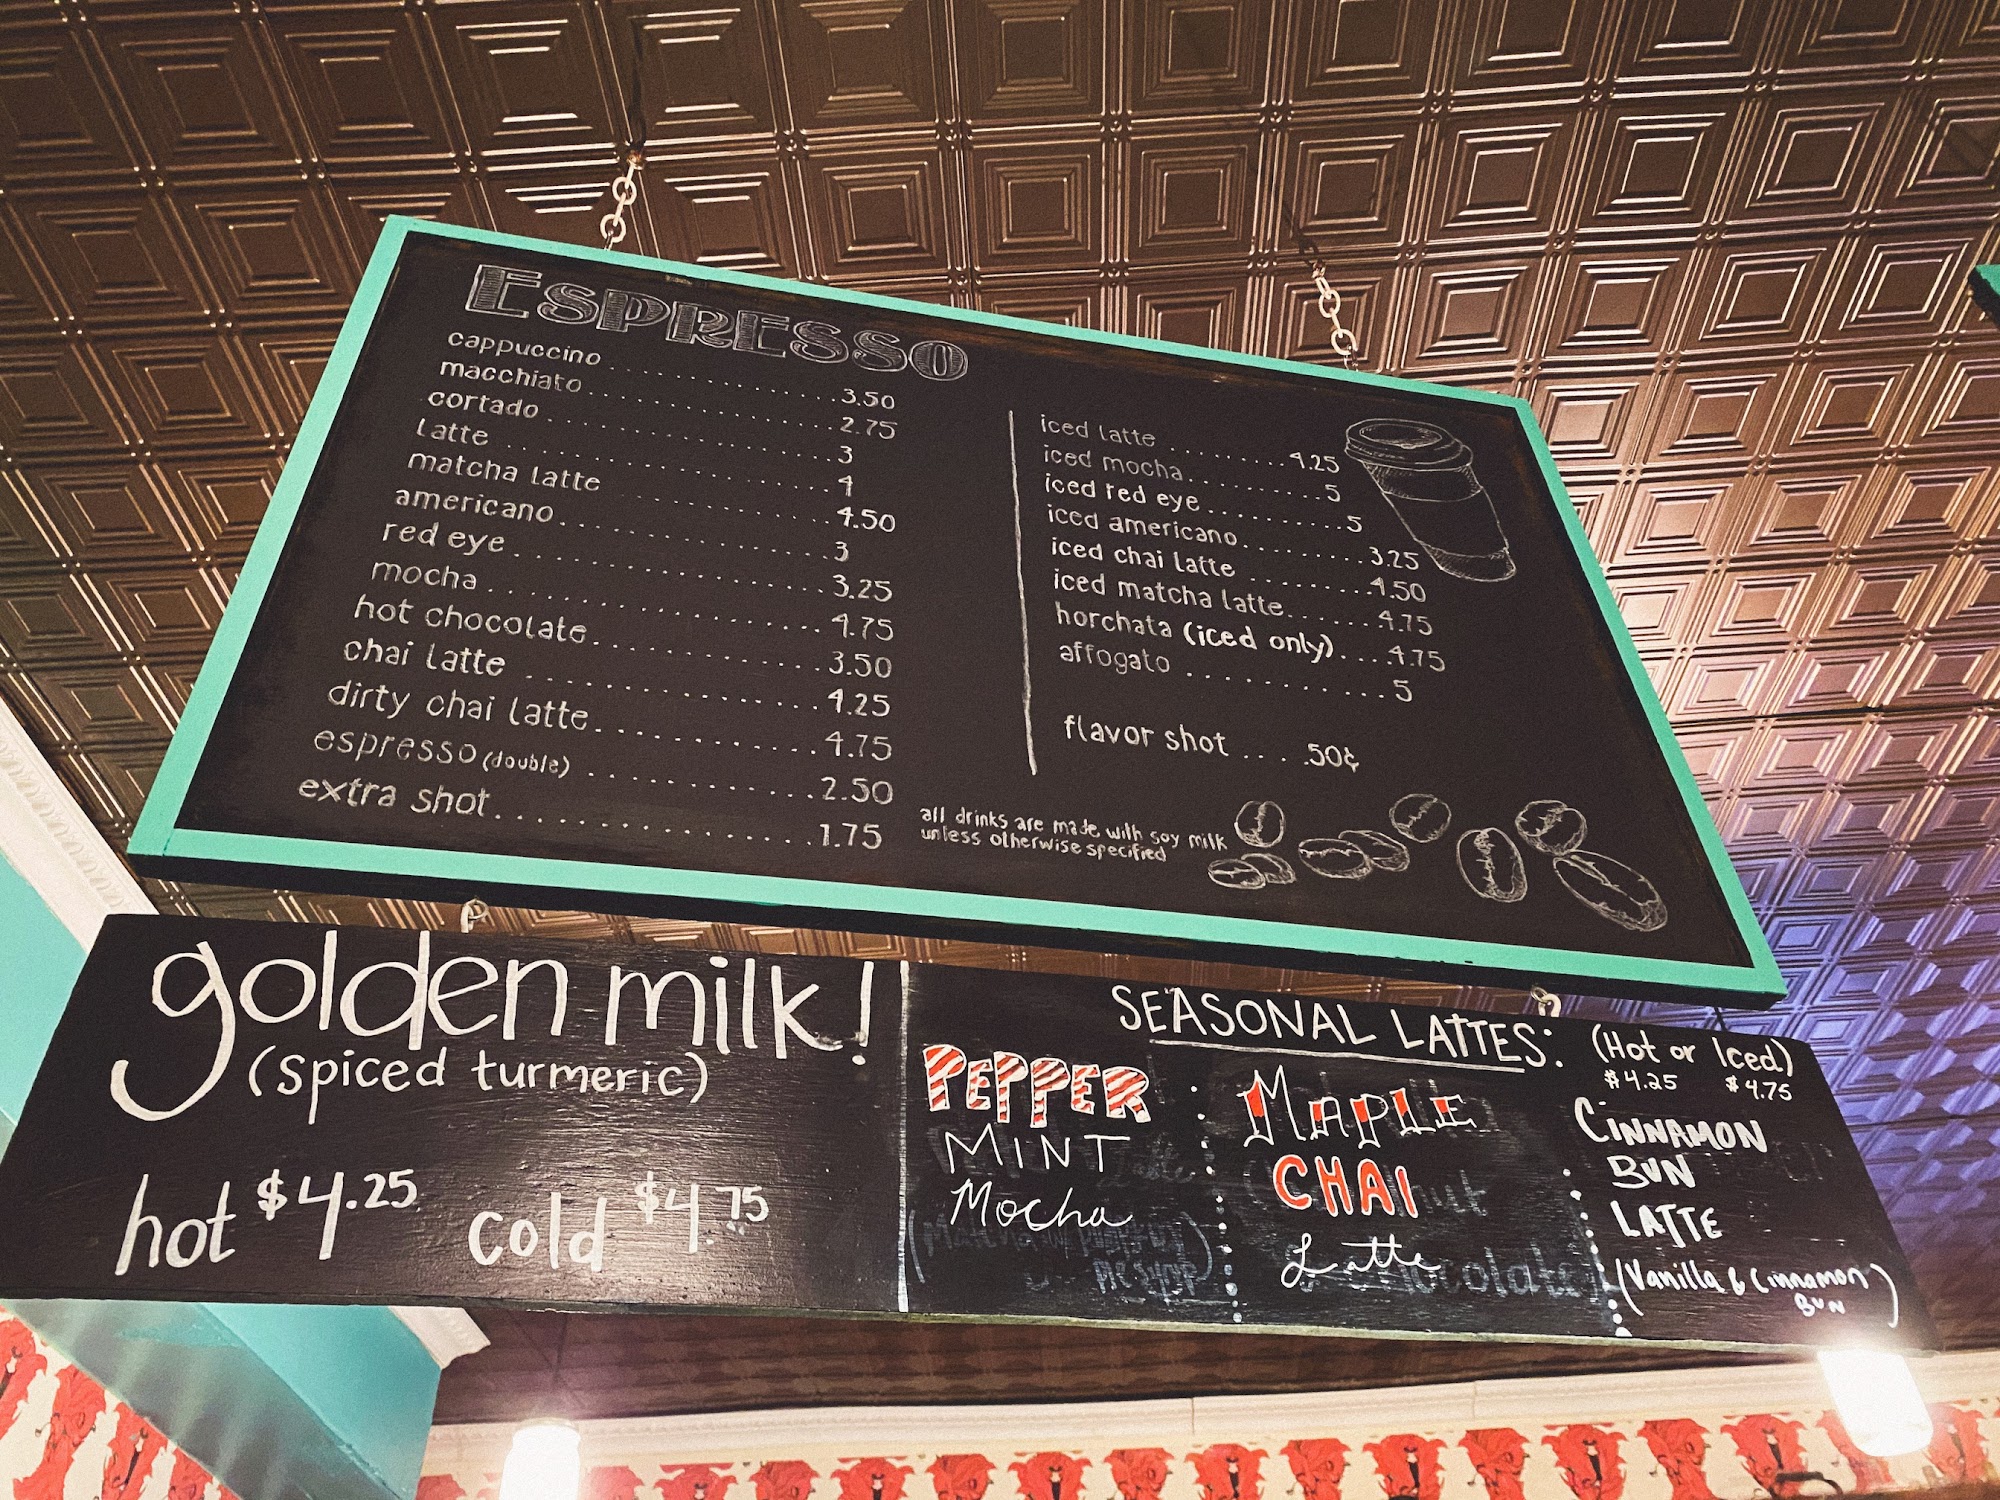 ESPRESSO
cappuccino..............3.50
macchiato...............2.75
cortado...................3
latte.....................4
matcha latte............4.50
americano.................3
red eye.................3.25
mocha...................4.75
hot chocolate...........3.50
chai latte..............4.25
dirty chai latte........4.75
espresso (double).......2.50
extra shot..............1.75
iced latte.........4.25
iced mocha..........5
iced red eye..........5
iced americano........3.25
iced chai latte.......4.50
iced matcha latte.....4.75
horchata (iced only)....4.75
affogato............5
flavor shot....50¢
all drinks are made with soy milk
unless otherwise specified
golden milk!
(spiced turmeric)
hot $4.25 cold $4.75
SEASONAL LATTES: (Hot or Iced)
$4.25 $4.75
PEPPER
MINT
Mocha
MAPLE
CHAI
Latte
CINNAMON
BUN
LATTE
(Vanilla & Cinnamon
BUN)